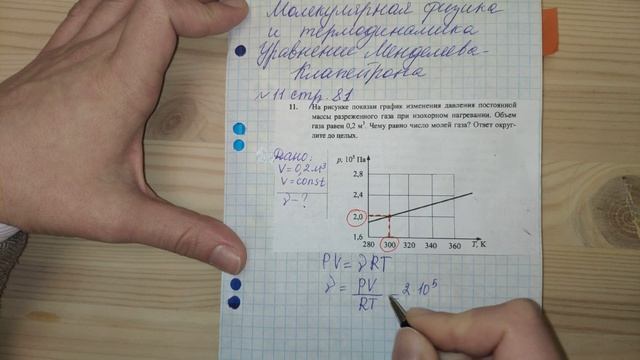 Молекулярная физика
и термодинамика
Уравнение Менделеева-
Клапейрона
~11 стр. 81
11. На рисунке показан график изменения давления постоянной
массы разреженного газа при изохорном нагревании. Объем
газа равен 0,2 м³. Чему равно число молей газа? Ответ округ-
лите до целых.
Дано:
V = 0,2 м³
V = const
ν - ?
p, 10⁵ Па
2,8
2,4
2,0
1,6
280 300 320 340 360 T, К
PV = νRT
ν = PV/RT = 2 10⁵